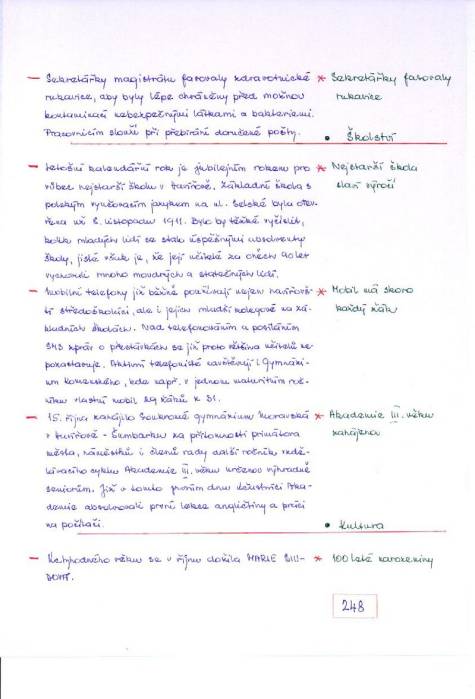 — Sekretářky magistrátu fasovaly zdravotnické
rukavice, aby byly lépe chráněny před možnou
kontaminací nebezpečnými látkami a bakteriemi.
Pracovnicím slouží při přebírání doručené pošty.
* Sekretářky fasovaly
rukavice
• Školství
— Letošní kalendářní rok je jubilejním rokem pro
vůbec nejstarší školu v Havířově. Základní škola s
polským vyučovacím jazykem na ul. Selské byla otev-
řena už 8. listopadu 1911. Bylo by těžké vyčíslit,
kolik mladých lidí se stalo úspěšnými absolventy
školy, jisté však je, že její učitelé za oněch 90 let
vychovali mnoho moudrých a statečných lidí.
* Nejstarší škola
slaví výročí
— Mobilní telefony již běžně používají nejen havířovš-
tí středoškoláci, ale i jejich mladší kolegové na zá-
kladních školách. Nad telefonováním a posíláním
SMS zpráv o přestávkách se již proto většina učitelů ne-
pozastavuje. Aktivní telefonisté navštěvují i Gymnázi-
um Komenského, kde např. v jednom maturitním roč-
níku vlastní mobil 29 žáků z 31.
* Mobil má skoro
každý žák
— 15. října zahájilo Soukromé gymnázium Moravská
v Havířově - Šumbarku za přítomnosti primátora
města, náměstků i členů rady další ročník vzdě-
lávacího cyklu Akademie III. věku určenou výhradně
seniorům. Již v tomto prvním dnu účastníci Aka-
demie absolvovali první lekce angličtiny a práci
na počítači.
* Akademie III. věku
zahájena
• Kultura
— Úctyhodného věku se v říjnu dožila MARIE
* 100 leté narozeniny
248